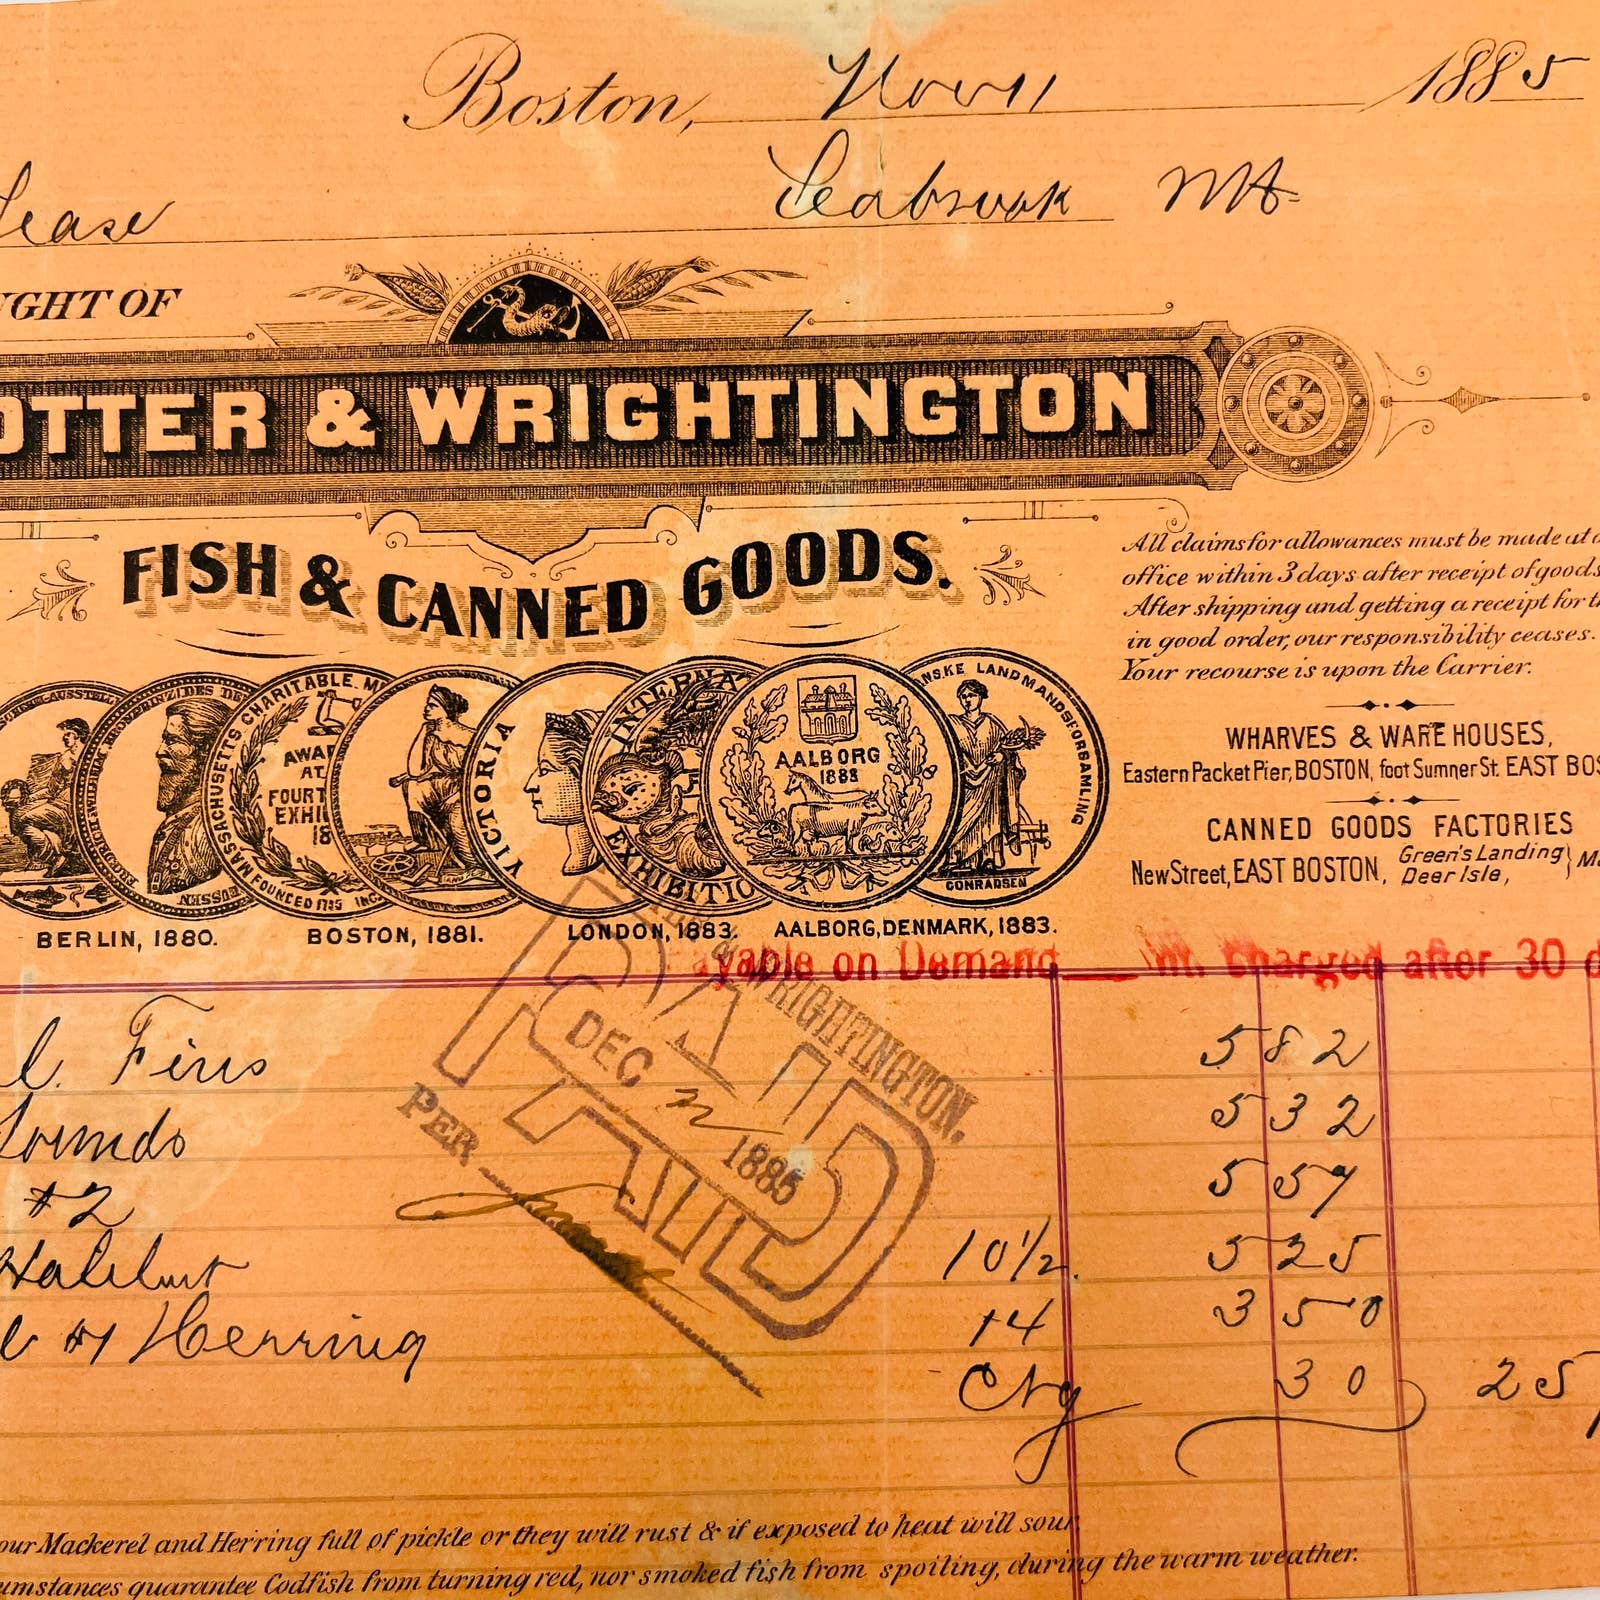 Boston, Nov 11 1885
Lease Seabrook NH
UGHT OF
OTTER & WRIGHTINGTON
FISH & CANNED GOODS.
All claims for allowances must be made at
office within 3 days after receipt of goods
After shipping and getting a receipt for th
in good order, our responsibility ceases.
Your recourse is upon the Carrier.
WHARVES & WARE HOUSES,
Eastern Packet Pier, BOSTON, foot Sumner St. EAST BOS
CANNED GOODS FACTORIES
New Street, EAST BOSTON, Green's Landing
Deer Isle,
MASSACHUSETTS CHARITABLE
AWAR
AT
FOURT
EXHI
18
FOUNDED 1795 INC
VICTORIA
INTERNA
EXHIBITIO
AALBORG
1883
NSKE LANDMANDSFORSAMLING
CONRADSEN
BERLIN, 1880.
BOSTON, 1881.
LONDON, 1883.
AALBORG, DENMARK, 1883.
ayable on Demand Int. charged after 30 d
& WRIGHTINGTON.
PAID
DEC 2 1885
PER
l. Fins 5 82
Sounds 5 32
#2 5 57
Halibut 10 1/2 5 25
#1 Herring 14 3 50
Ctg 30 25
our Mackerel and Herring full of pickle or they will rust & if exposed to heat will sour.
umstances guarantee Codfish from turning red, nor smoked fish from spoiling, during the warm weather.